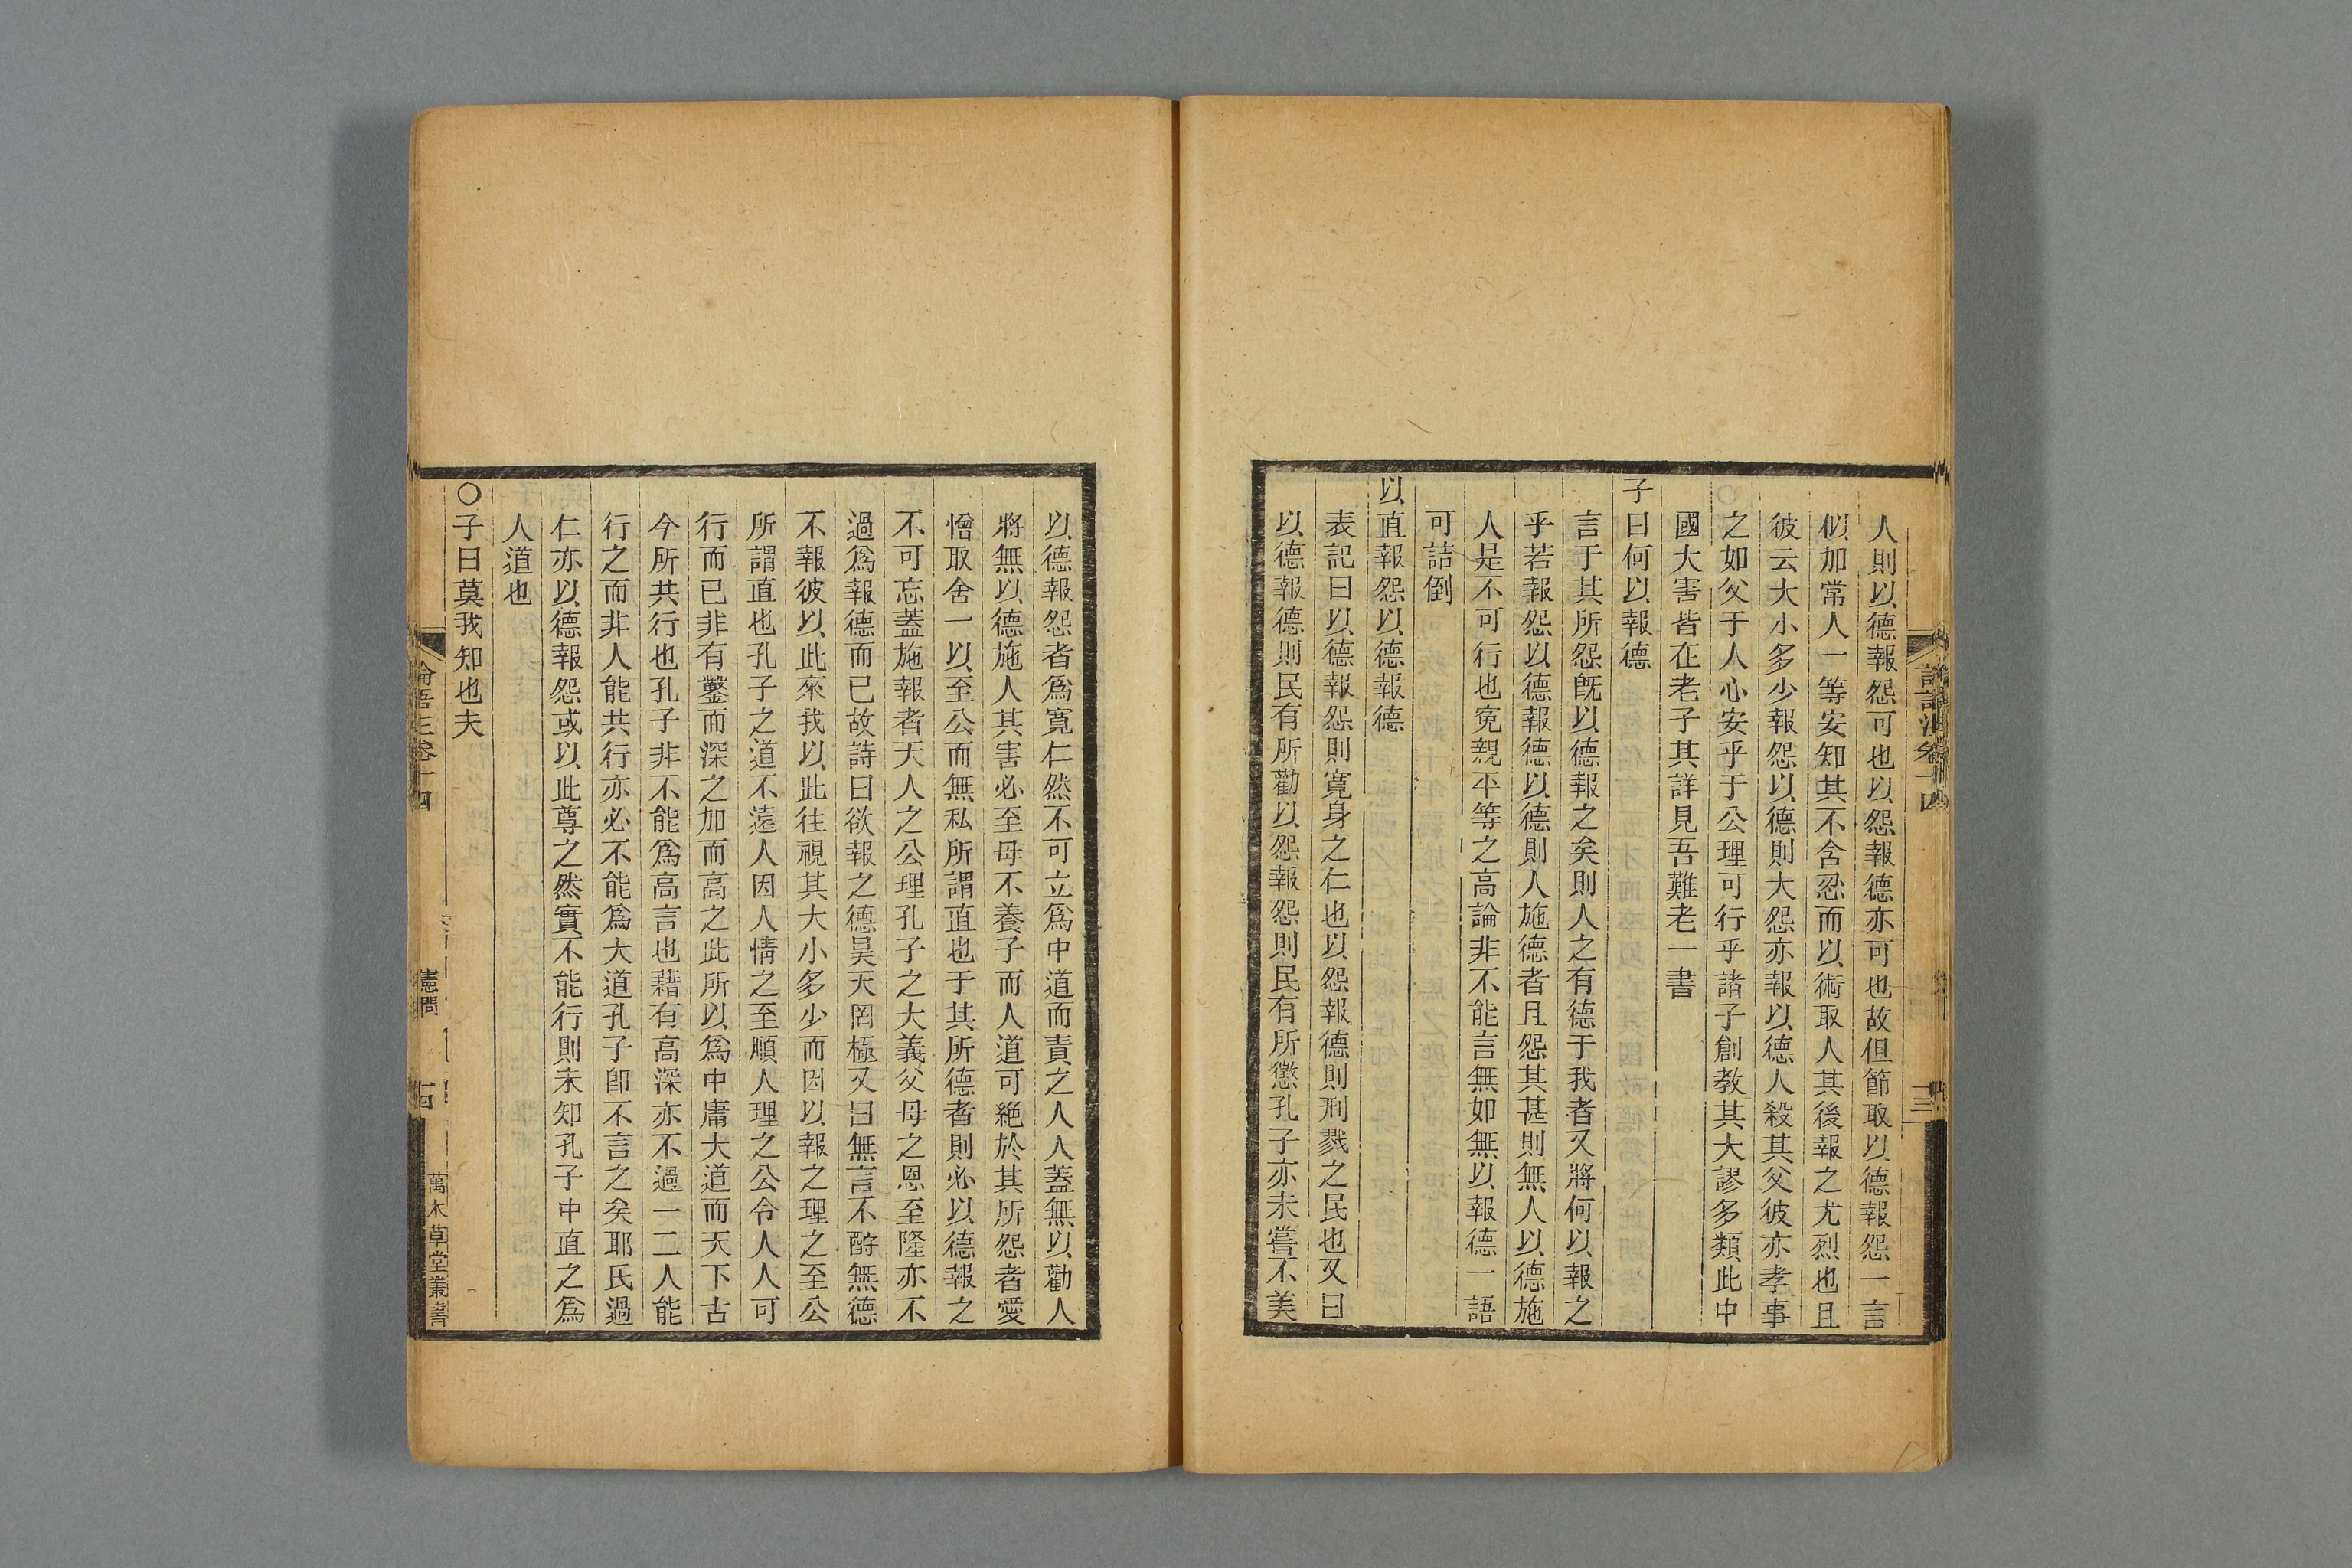 人則以德報怨可也以怨報德亦可也故但節取以德報怨一言
似加常人一等安知其不含忍而以術取人其後報之尤烈也且
彼云大小多少報怨以德則大怨亦報以德人殺其父彼亦孝事
之如父于人心安乎于公理可行乎諸子創教其大謬多類此中
國大害皆在老子其詳見吾難老一書
子曰何以報德
言于其所怨旣以德報之矣則人之有德于我者又將何以報之
乎若報怨以德報德以德則人施德者且怨其甚則無人以德施
人是不可行也寃親平等之高論非不能言無如無以報德一語
可詰倒
以直報怨以德報德
表記曰以德報怨則寬身之仁也以怨報德則刑戮之民也又曰
以德報德則民有所勸以怨報怨則民有所懲孔子亦未嘗不美
以德報怨者爲寬仁然不可立爲中道而責之人人蓋無以勸人
將無以德施人其害必至母不養子而人道可絕於其所怨者愛
憎取舍一以至公而無私所謂直也于其所德者則必以德報之
不可忘蓋施報者天人之公理孔子之大義父母之恩至隆亦不
過爲報德而已故詩曰欲報之德昊天罔極又曰無言不酧無德
不報彼以此來我以此往視其大小多少而因以報之理之至公
所謂直也孔子之道不遠人因人情之至順人理之公令人人可
行而已非有鑿而深之加而高之此所以爲中庸大道而天下古
今所共行也孔子非不能爲高言也藉有高深亦不過一二人能
行之而非人能共行亦必不能爲大道孔子卽不言之矣耶氏過
仁亦以德報怨或以此尊之然實不能行則未知孔子中直之爲
人道也
○子曰莫我知也夫
論語注卷十四
憲問
十四
萬木草堂叢書